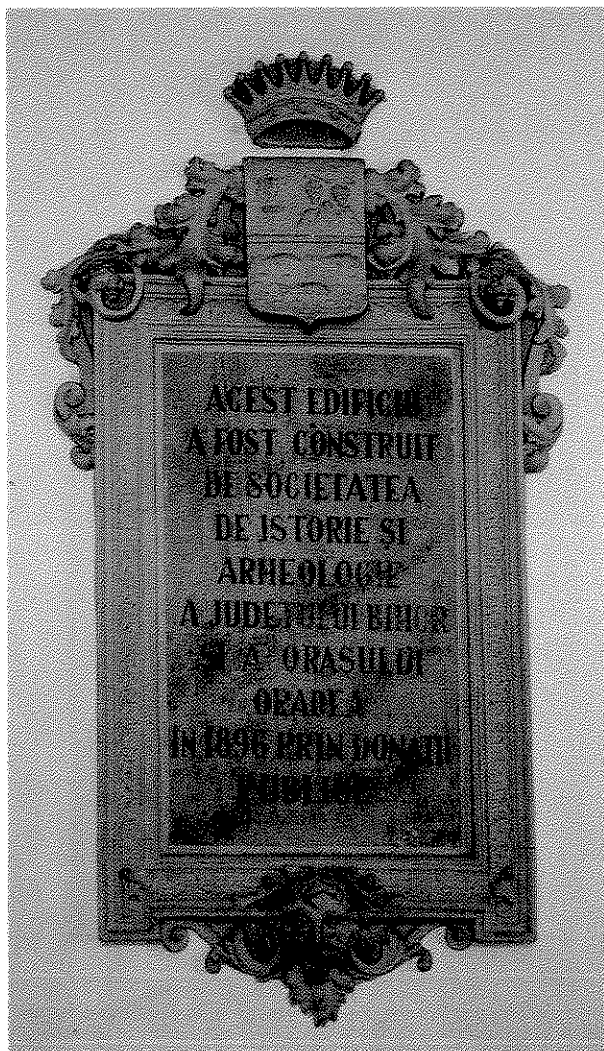 ACEST EDIFICIU
A FOST CONSTRUIT
DE SOCIETATEA
DE ISTORIE ȘI
ARHEOLOGIE
A JUDEȚULUI BIHOR
ȘI A ORAȘULUI
ORADEA
IN 1896 PRIN DONAȚII
PUBLICE